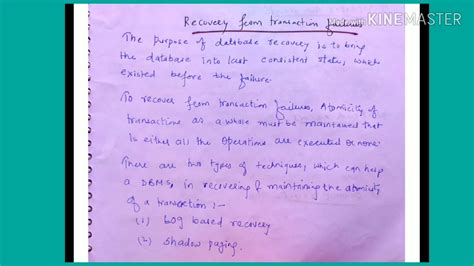 Recovery from transaction failures
Made with KINEMASTER
The purpose of database recovery is to bring
the database into last consistent state, which
existed before the failure.
To recover from transaction failures, Atomicity of
transactions as a whole must be maintained that
is either all the operations are executed or none.
There are two types of techniques, which can help
a DBMS, in recovering & maintaining the atomicity
of a transaction :-
(1) log based recovery
(2) shadow paging.